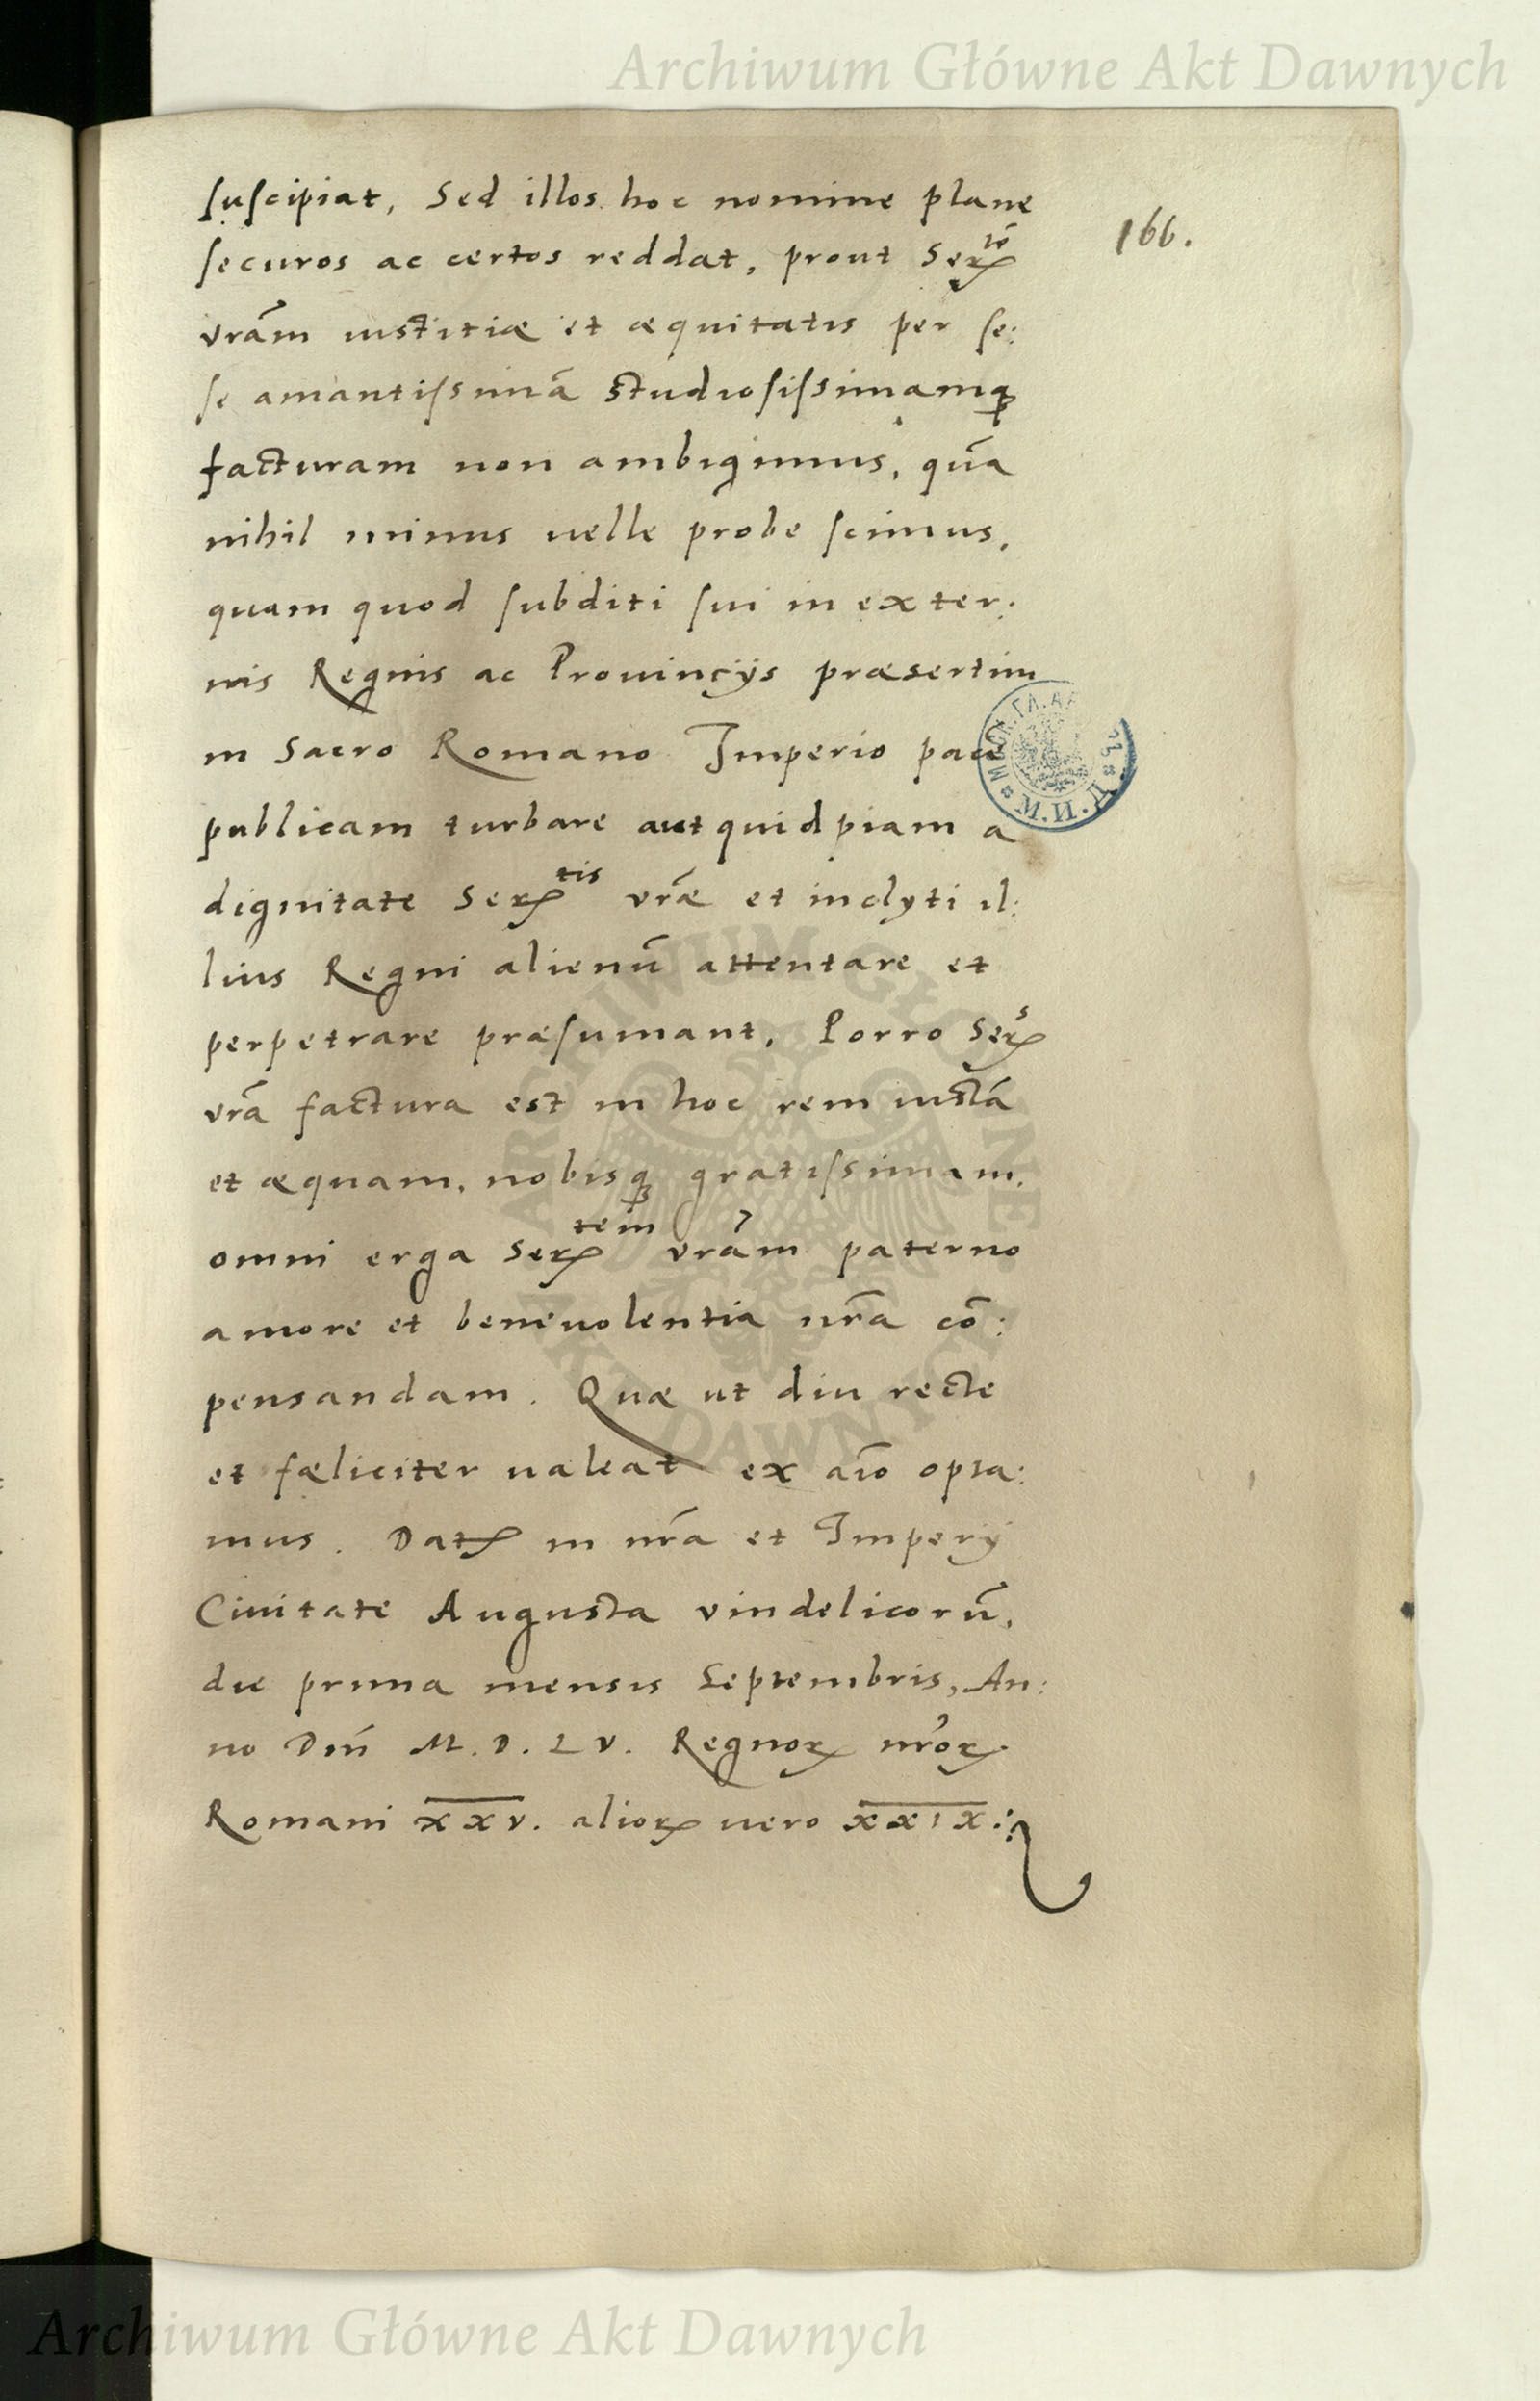 Archiwum Główne Akt Dawnych
suscipiat, Sed illos hoc nomine plane
166.
securos ac certos reddat, prout Ser^tē
vrām iustitiæ et æquitatis per se:
se amantissimā studiosissimamq₃
facturam non ambigimus, quā
nihil minus uelle probe scimus,
quam quod subditi sui in exter:
nis Regnis ac Prouincijs præsertim
in Sacro Romano Imperio pacē
publicam turbare aut quidpiam a
dignitate Ser^tis vræ et inclyti il:
lius Regni alienū attentare et
perpetrare præsumant, Porro Ser^s
vrā factura est in hoc rem iustā
et æquam, nobisq₃ gratissimam.
omni erga Ser^tem vrām paterno
amore et beneuolentia nrā cō:
pensandam. Quæ ut diu recte
et fæliciter ualeat ex aīo opta:
mus. Datꝭ in nrā et Imperij
Ciuitate Augusta vindelicorū,
die prima mensis Septembris, An:
no Dnī M.D.LV. Regnoꝝ nrōꝝ
Romani XXV. alioꝝ uero XXIX:
М.И.Ю.
ARCHIWUM GŁÓWNE
AKT DAWNYCH
Archiwum Główne Akt Dawnych